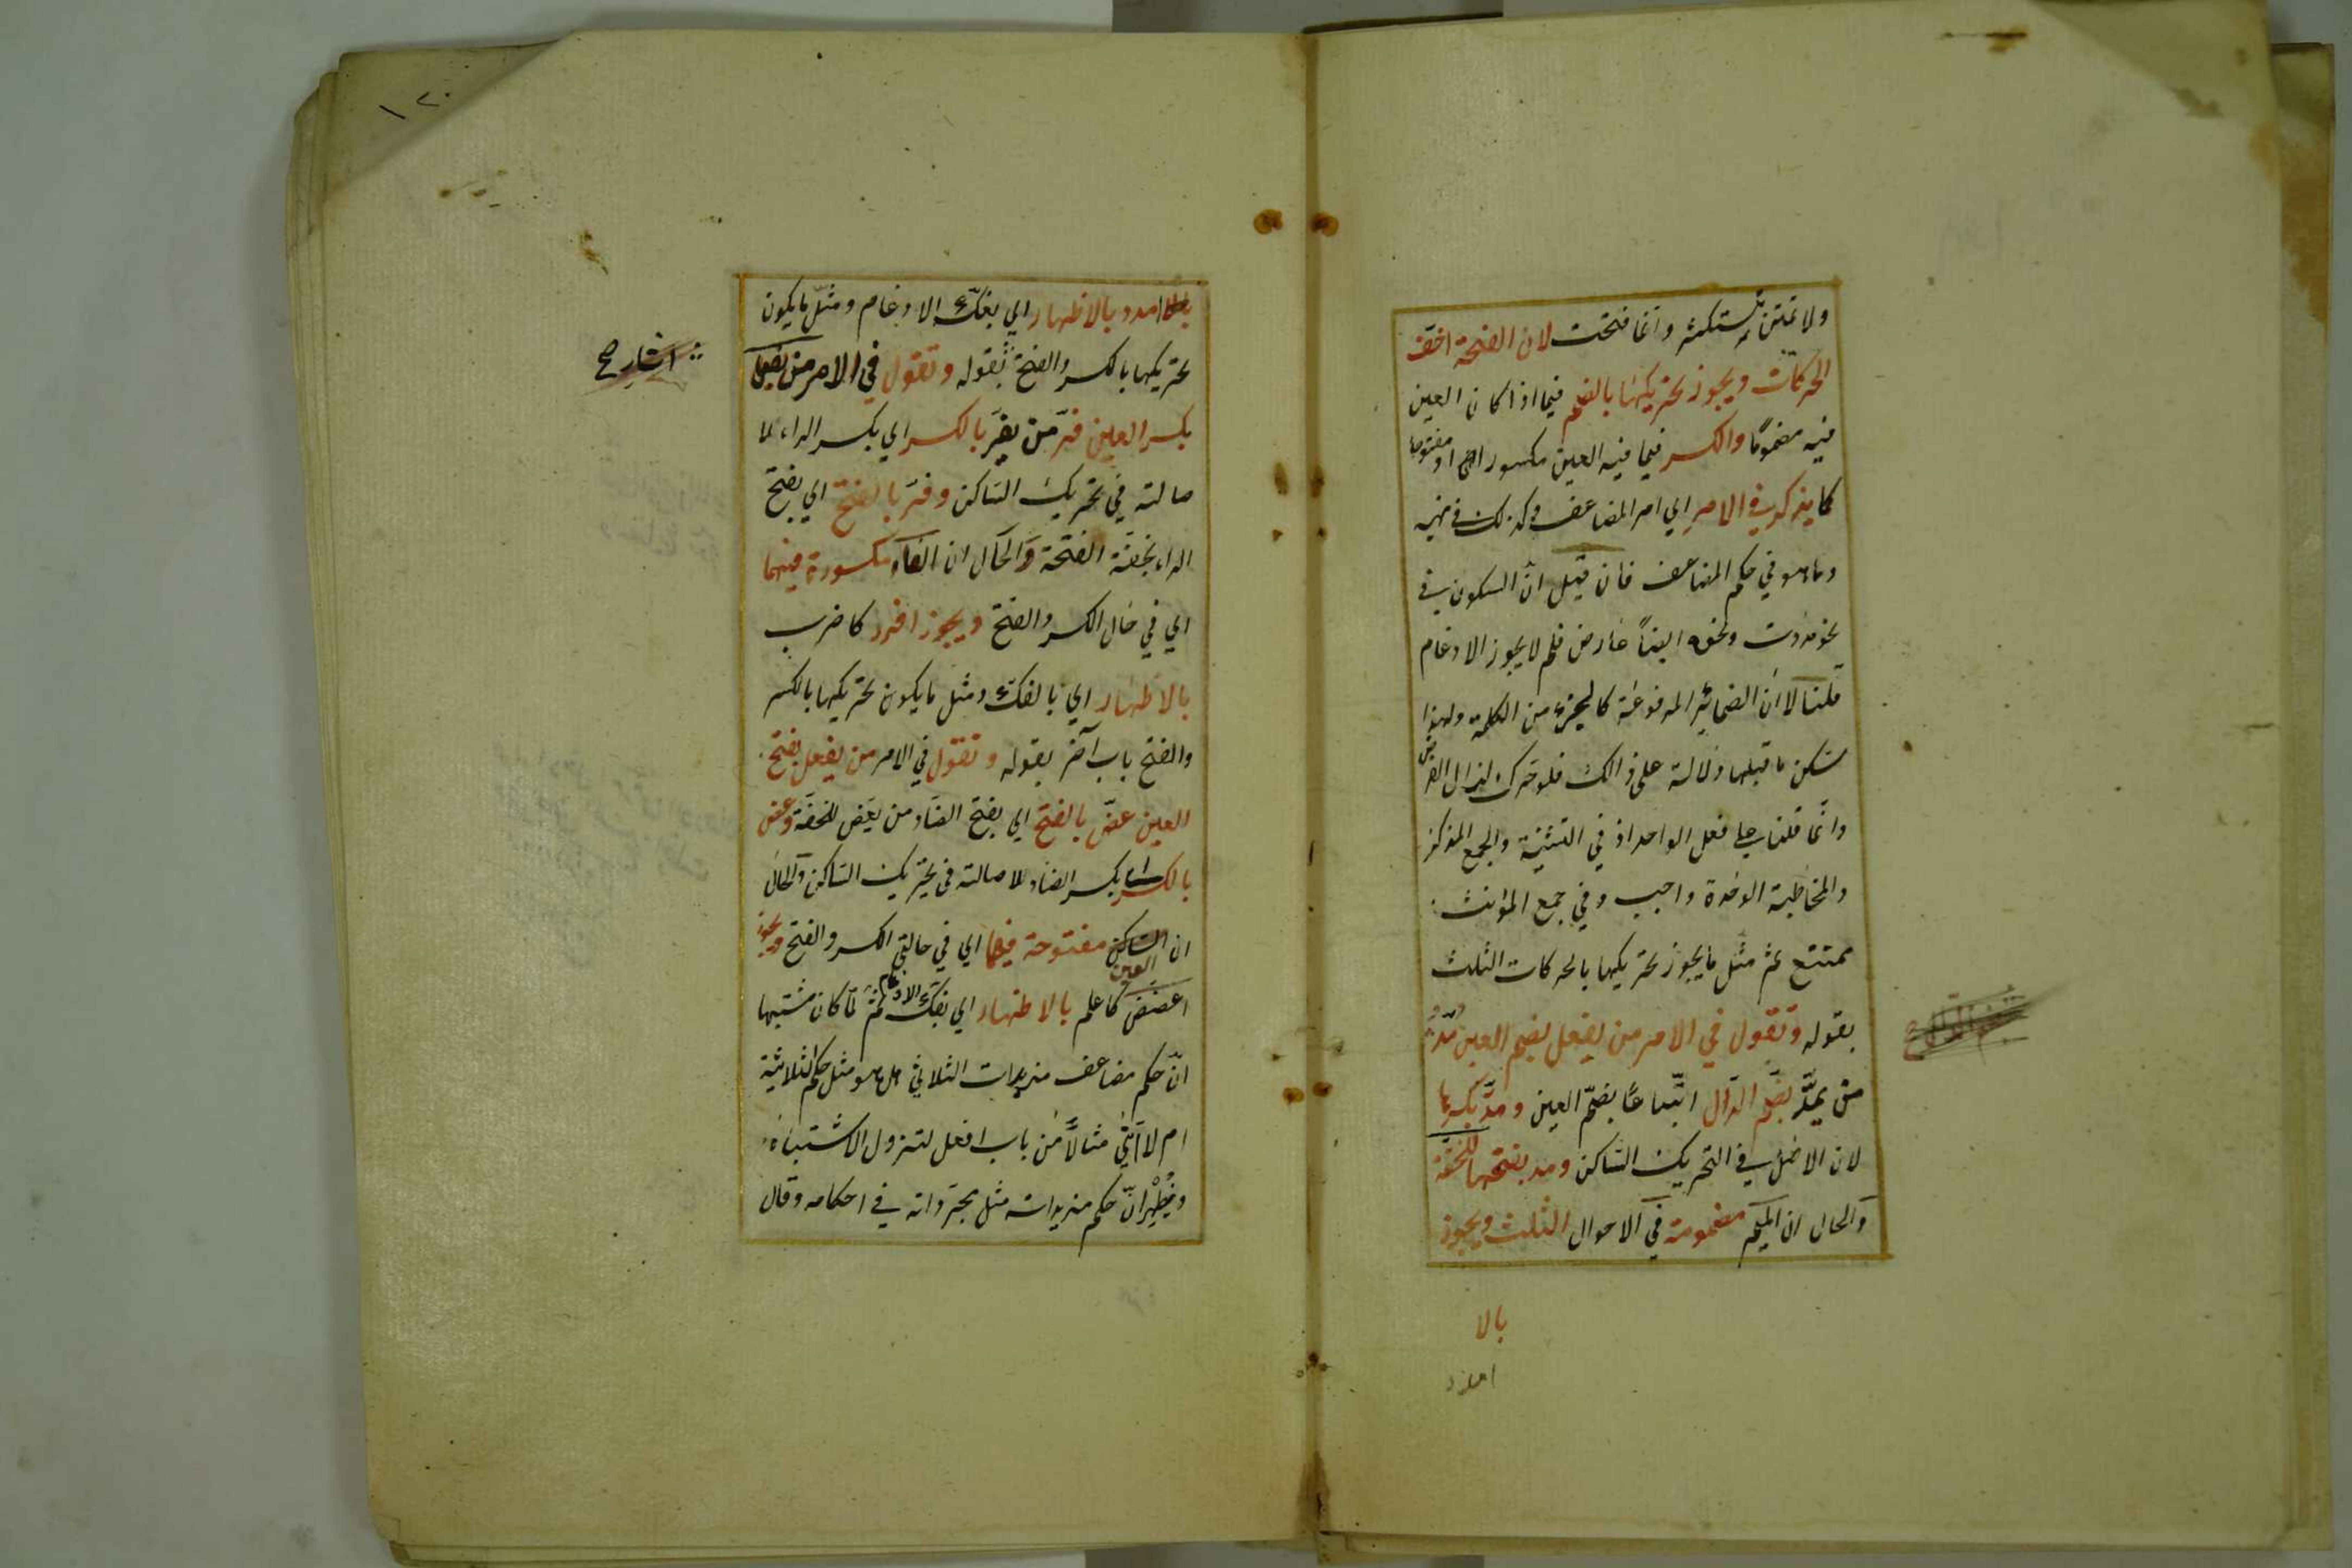 ولا تمنن تستكثر وانما فتحت لان الفتحة اخف
الحركات ويجوز تحريكها بالضم فيما اذا كان العين
فيه مضموما والكسر فيما فيه العين مكسورا او مفتوحا
كما يذكر في الامر اي امر المضاعف وكذلك في نهيه
وما هو في حكم المضاعف فان قيل ان السكون في
نحو مددت ونحوه ايضاً عارض فلم لا يجوز الادغام
قلنا لا ان الضمائر المرفوعة كالجزء من الكلمة ولهذا
سكن ما قبلها دلالة على ذالك فلو حرك لزال الغرض
وانما قلنا على فعل الواحد اذ في التثنية والجمع المذكر
والمخاطبة الواحدة واجب وفي جمع المؤنث
ممتنع ثم مثل ما يجوز تحريكها بالحركات الثلث
بقوله وتقول في الامر من يفعل بضم العين مدّ
من يمدّ بضم الدال اتباعاً بضم العين ومدّ بكسرها
لان الاصل في التحريك الساكن ومد بفتحها للخفة
والحال ان الميم مضمومة في الاحوال الثلث ويجوز
بالا
امدد
١٢٠
امدد بالاظهار اي بفك الادغام ومثل ما يكون
تحريكها بالكسر والفتح بقوله وتقول في الامر من يفعل
الشارح
بكسر العين فرّ من يفرّ بالكسر اي بكسر الراء لما
صالته في تحريك الساكن وفرّ بالفتح اي بفتح
الراء بخفة الفتحة والحال ان الفاء مكسورة فيهما
اي في حال الكسر والفتح ويجوز افرر كاضرب
بالاظهار اي بالفك ومثل ما يكون تحريكها بالكسر
والفتح باب آخر بقوله وتقول في الامر من يفعل بفتح
العين عضّ بالفتح اي بفتح الضاد من يعض للخفة وعض
بالكسر اي بكسر الضاد للاصالته في تحريك الساكن والحال
ان العين مفتوحة فيهما اي في حالتي الكسر والفتح ويجوز
اعضض كاعلم بالاظهار اي بفك الادغام ثم لما كان مشتبها
ان حكم مضاعف مزيدات الثلاثي هل هو مثل حكم الثلاثية
ام لا اتى مثالاً من باب افعل لتزول الاشتباه
ويظهر ان حكم مزيداته مثل مجرداته في احكامه وقال